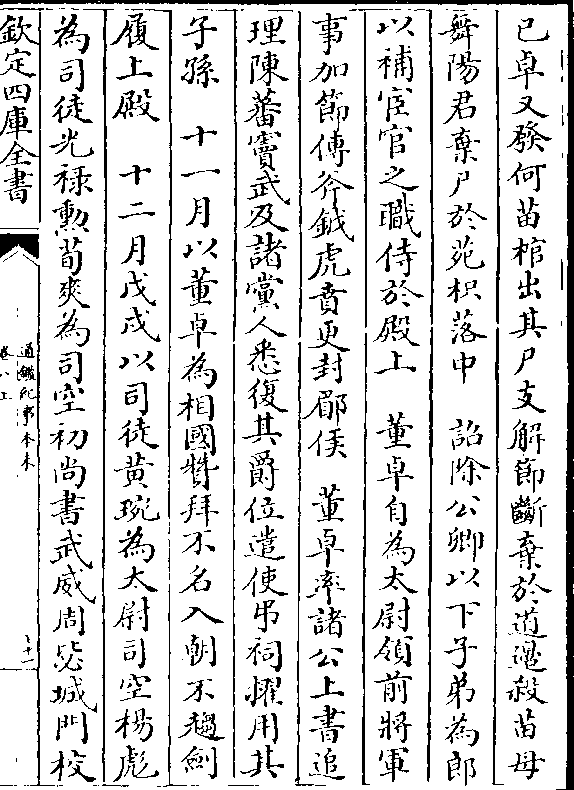 已卓又發何苗棺出其尸支解節斷棄於道邊殺苗母
舞陽君棄尸於苑枳落中　詔除公卿以下子弟為郎
以補宦官之職侍於殿上　董卓自為太尉領前將軍
事加節傳斧鉞虎賁更封郿侯　董卓率諸公上書追
理陳蕃竇武及諸黨人悉復其爵位遣使弔祠擢用其
子孫　十一月以董卓為相國贊拜不名入朝不趨劍
履上殿　十二月戊戌以司徒黃琬為太尉司空楊彪
為司徒光祿勲荀爽為司空初尚書武威周毖城門校
欽定四庫全書
通鑑紀事本末
卷八上